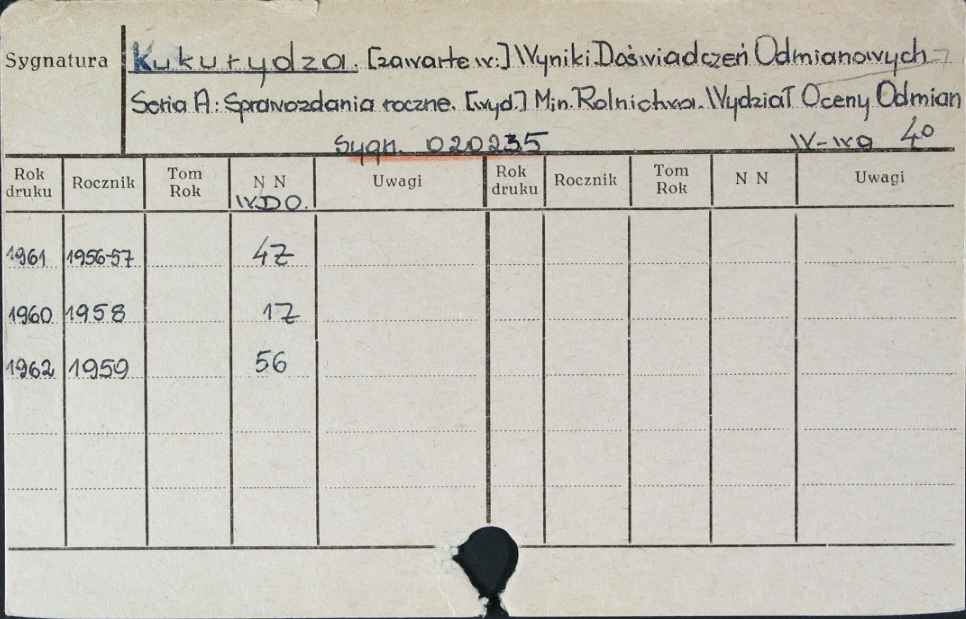 Sygnatura Kukurydza. [zawarte w:] Wyniki Doświadczeń Odmianowych
Seria A: Sprawozdania roczne. [wyd.] Min. Rolnictwa. Wydział Oceny Odmian
Sygn. 020235 W-wa 4°
Rok druku Rocznik Tom Rok N N Uwagi Rok druku Rocznik Tom Rok N N Uwagi
W.D.O.
1961 1956-57 47
1960 1958 17
1962 1959 56